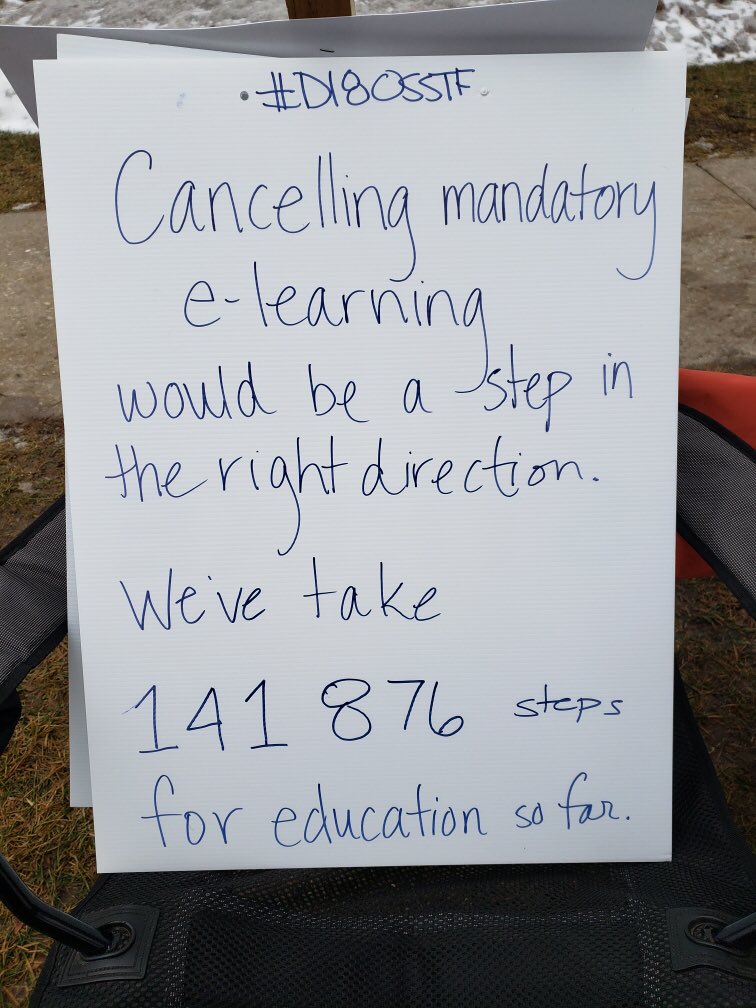 #D18OSSTF
Cancelling mandatory
e-learning
would be a step in
the right direction.
We've take
141 876 steps
for education so far.